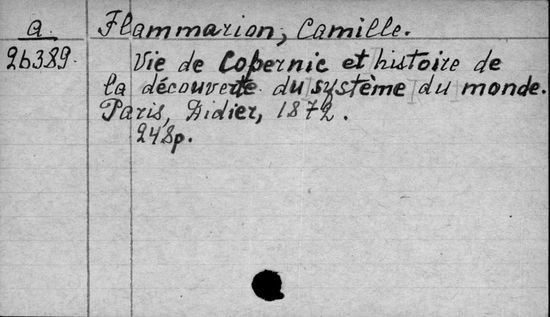 a
26389.
Flammarion, Camille.
Vie de Copernic et histoire de
la découverte du système du monde.
Paris, Didier, 1872.
248p.